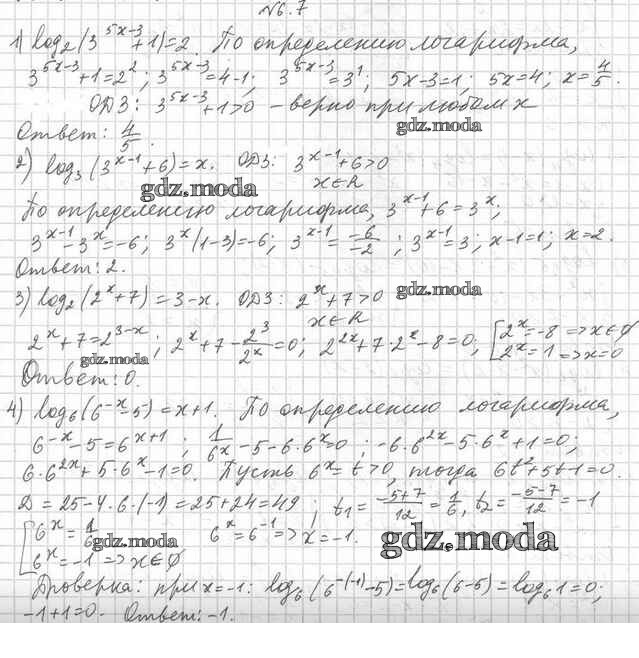 №6.7
1) log₂(3^(5x-3)+1)=2. По определению логарифма,
3^(5x-3)+1=2²; 3^(5x-3)=4-1; 3^(5x-3)=3¹; 5x-3=1; 5x=4; x=4/5.
ОДЗ: 3^(5x-3)+1>0 – верно при любом x
Ответ: 4/5.
gdz.moda
2) log₃(3^(x-1)+6)=x. ОДЗ: 3^(x-1)+6>0
x∈R
gdz.moda
По определению логарифма, 3^(x-1)+6=3^x;
3^(x-1)-3^x=-6; 3^x(1-3)=-6; 3^(x-1)=-6/-2; 3^(x-1)=3; x-1=1; x=2.
Ответ: 2.
3) log₂(2^x+7)=3-x. ОДЗ: 2^x+7>0
gdz.moda
x∈R
2^x+7=2^(3-x); 2^x+7-2³/2^x=0; 2^(2x)+7·2^x-8=0; [2^x=-8 =>x∈∅
2^x=1=>x=0
gdz.moda
Ответ: 0.
4) log₆(6^(-x)-5)=x+1. По определению логарифма,
6^(-x)-5=6^(x+1); 1/6^x-5-6·6^x=0; -6·6^(2x)-5·6^x+1=0;
6·6^(2x)+5·6^x-1=0. Пусть 6^x=t>0, тогда 6t²+5t-1=0.
D=25-4·6·(-1)=25+24=49; t₁=(-5+7)/12=1/6, t₂=(-5-7)/12=-1
[6^x=1/6 6^x=6^(-1)=>x=-1.
gdz.moda
gdz.moda
6^x=-1=>x∈∅
Проверка: при x=-1: log₆(6^(-(-1))-5)=log₆(6-5)=log₆1=0;
-1+1=0. Ответ: -1.